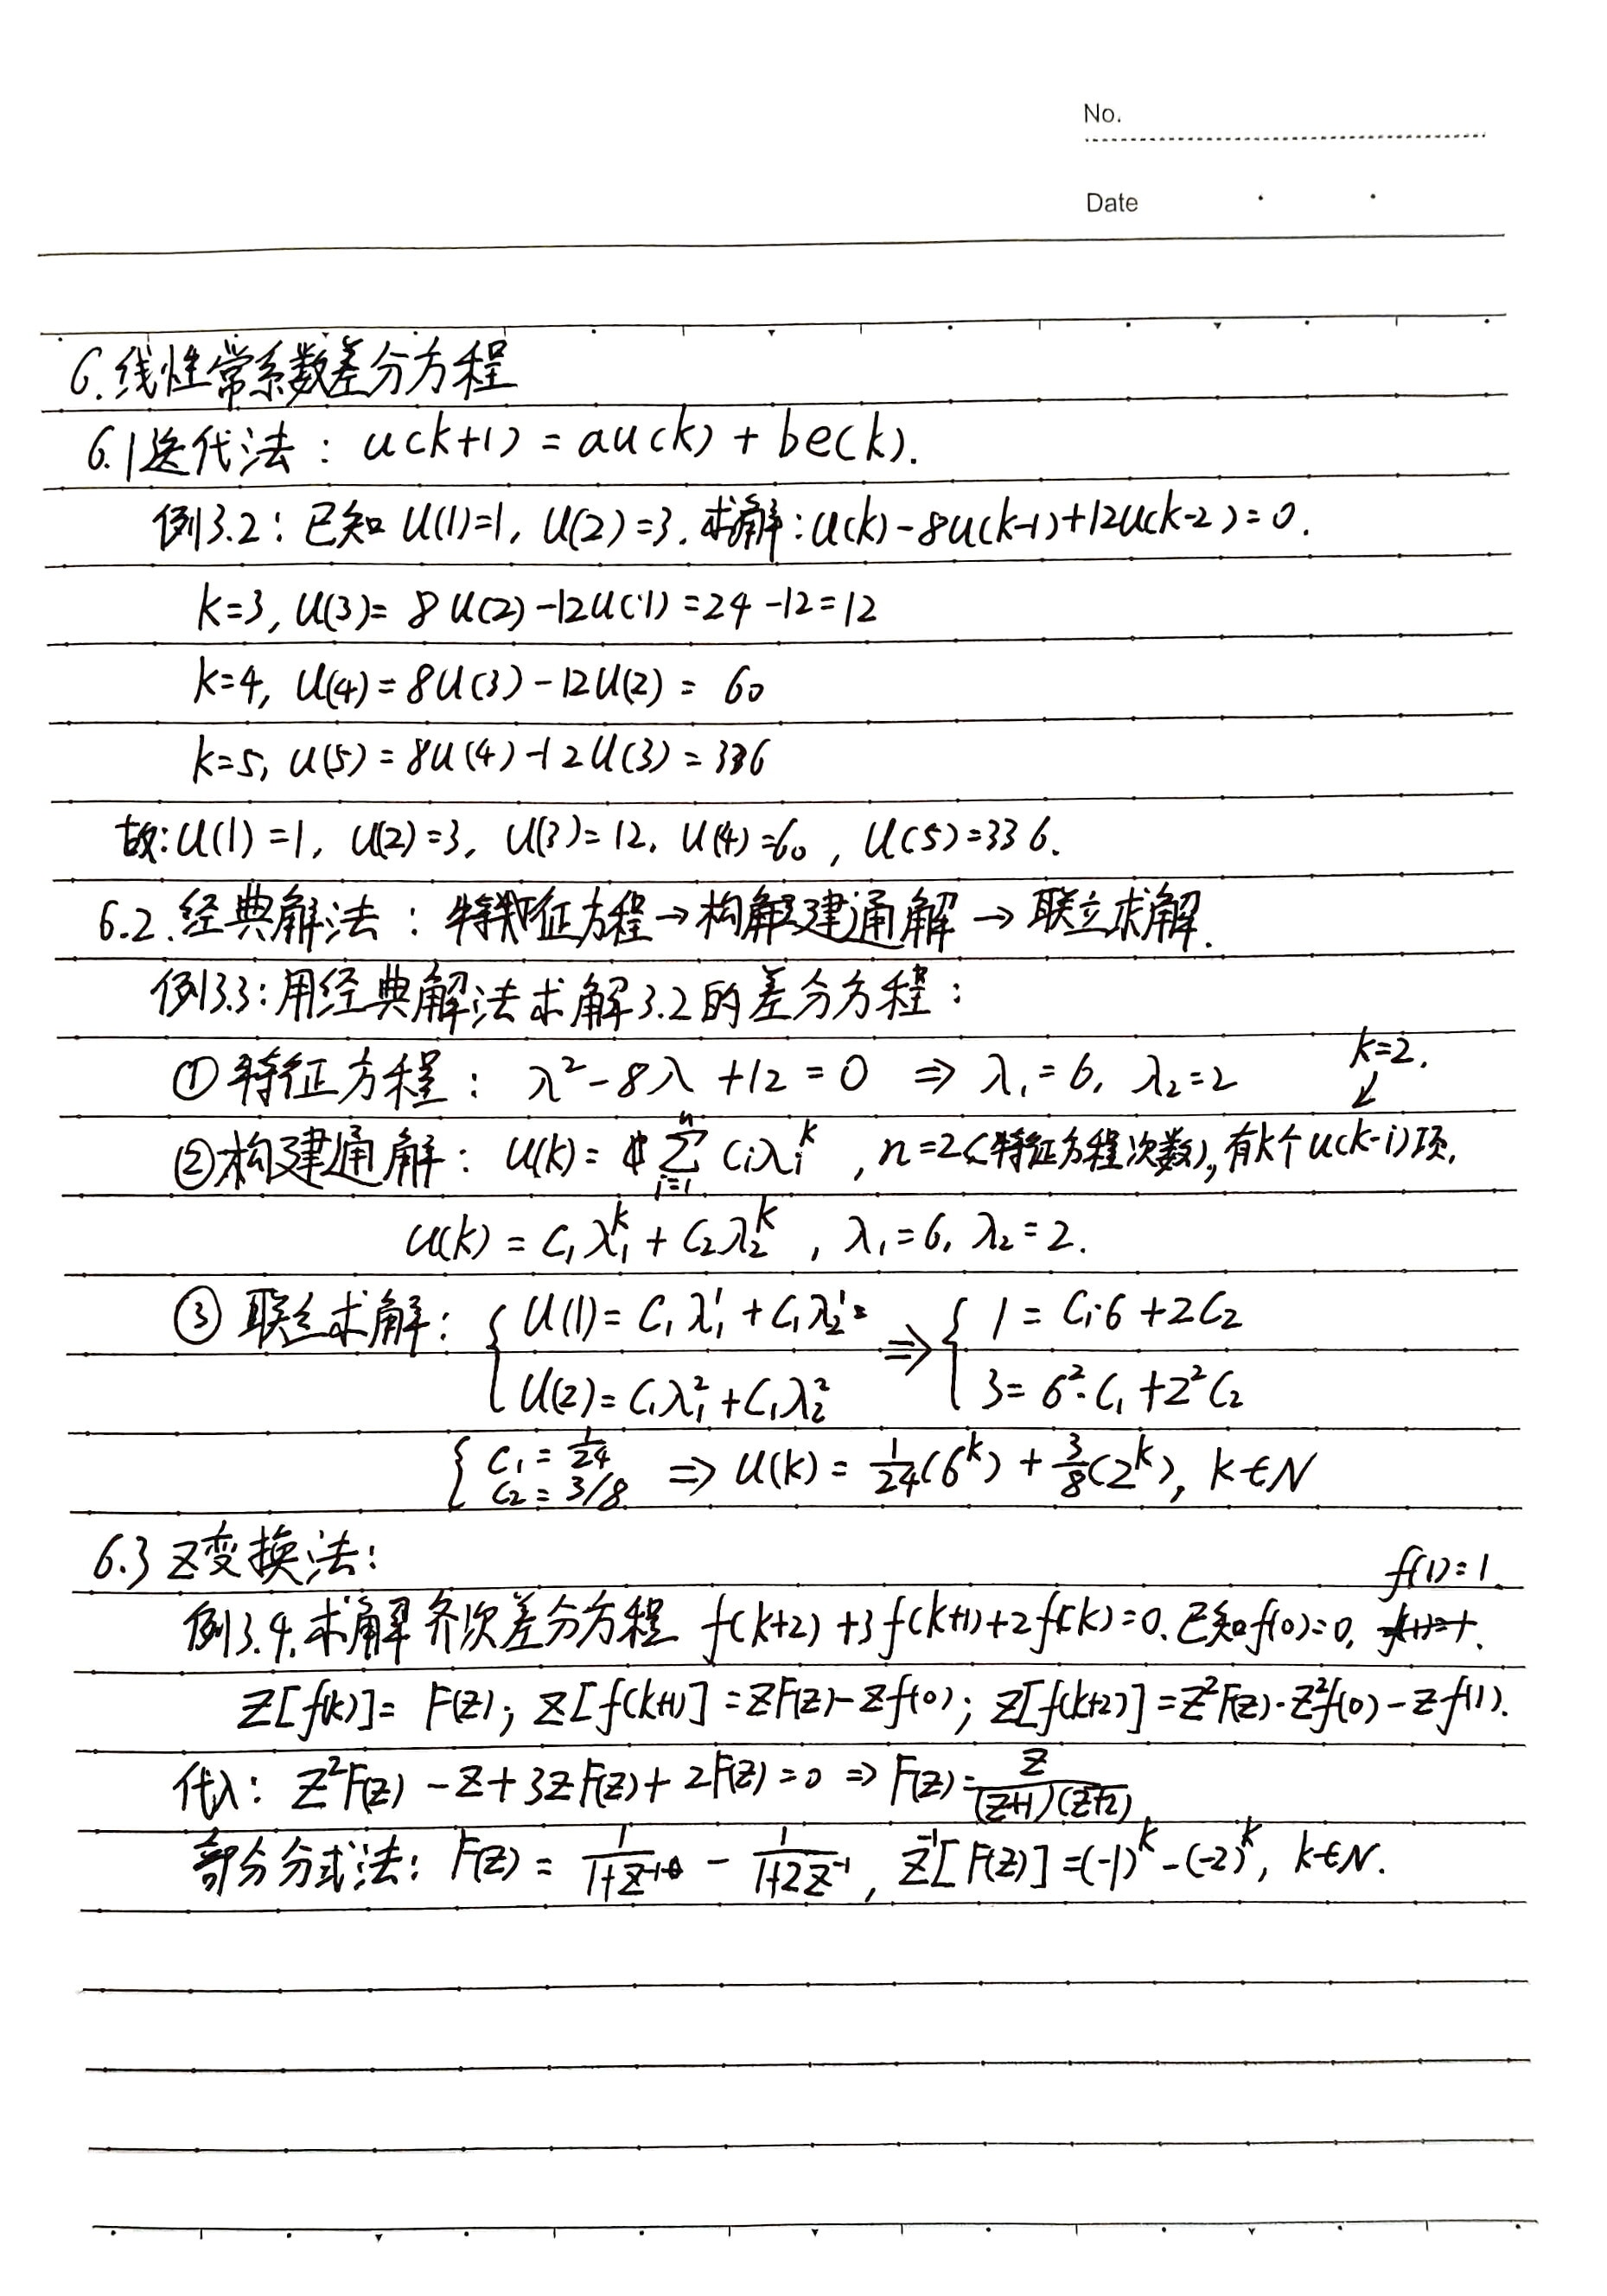 No.
Date
6.线性常系数差分方程
6.1迭代法：u(k+1) = au(k) + be(k).
例3.2：已知 u(1)=1, u(2)=3. 求解：u(k)-8u(k-1)+12u(k-2)=0.
k=3, u(3)= 8u(2)-12u(1)=24-12=12
k=4, u(4)=8u(3)-12u(2)= 60
k=5, u(5)=8u(4)-12u(3)=336
故：u(1)=1, u(2)=3, u(3)=12, u(4)=60, u(5)=336.
6.2.经典解法：特征方程→构建通解→联立求解.
例3.3：用经典解法求解3.2的差分方程：
k=2.
↙
①特征方程：λ²-8λ+12=0 ⇒ λ₁=6, λ₂=2
②构建通解：u(k)= ∑_{i=1}^{n} Cᵢλᵢᵏ, n=2(特征方程次数), 有k个u(k-i)项.
u(k) = C₁λ₁ᵏ + C₂λ₂ᵏ, λ₁=6, λ₂=2.
③联立求解：{ u(1)= C₁λ₁¹ + C₁λ₂¹= ⇒ { 1 = C₁·6 + 2C₂
u(2)= C₁λ₁² + C₁λ₂² 3= 6²·C₁ + 2²C₂
{ C₁ = 1/24 C₂ = 3/8 ⇒ u(k) = 1/24(6ᵏ) + 3/8(2ᵏ), k∈N
6.3 Z变换法：
f(1)=1.
例3.4.求解齐次差分方程 f(k+2)+3f(k+1)+2f(k)=0. 已知f(0)=0,
Z[f(k)]= F(z); Z[f(k+1)]=zF(z)-zf(0); Z[f(k+2)]=z²F(z)-z²f(0)-zf(1).
代入：z²F(z)-z+3zF(z)+2F(z)=0 ⇒ F(z)= z/((z+1)(z+2))
部分分式法：F(z)= 1/(1+z⁻¹) - 1/(1+2z⁻¹), Z⁻¹[F(z)]=(-1)ᵏ-(-2)ᵏ, k∈N.